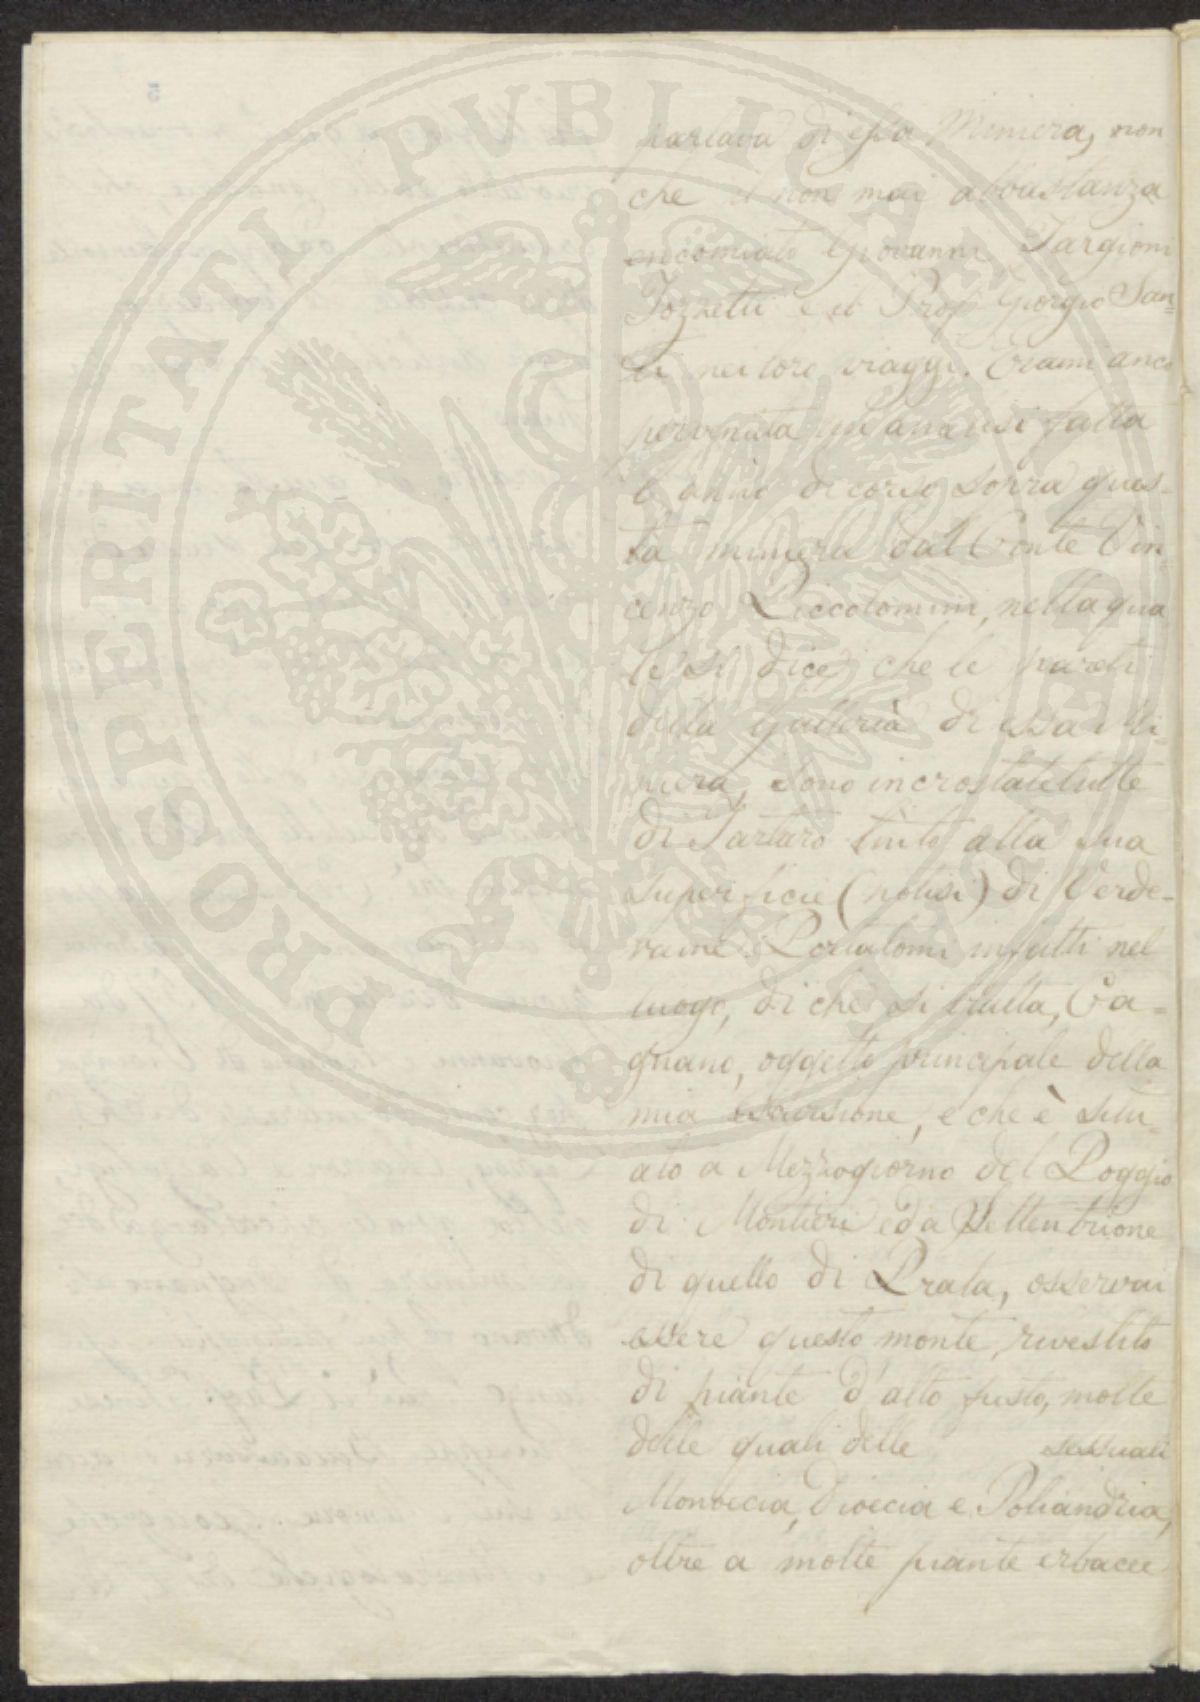 PROSPERITATI PUBLICAE AUGENDAE
parlava di essa Miniera, non
che il non mai abbastanza
encomiato Giovanni Targioni
Tozzetti e il Prof. Giorgio San=
ti nei loro viaggi. Erami anco
pervenuta un'analisi fatta
l'anno decorso sopra ques-
ta miniera dal Conte Vin
cenzo Piccolomini, nella qua
le si dice che le pareti
della Galleria di essa Mi-
niera, sono incrostate tutte
di Tartaro tinto alla sua
superficie (notisi) di Verde-
rame. Portatomi infatti nel
luogo, di che si tratta, Ca=
gnano, oggetto principale della
mia escursione, e che è situ-
ato a Mezzogiorno del Poggio
di Montieri ed a Settentrione
di quello di Prata, osservai
essere questo monte, rivestito
di piante d'alto fusto, molte
delle quali delle sessuali
Monoecia, Dioecia e Poliandria,
oltre a molte piante erbacee